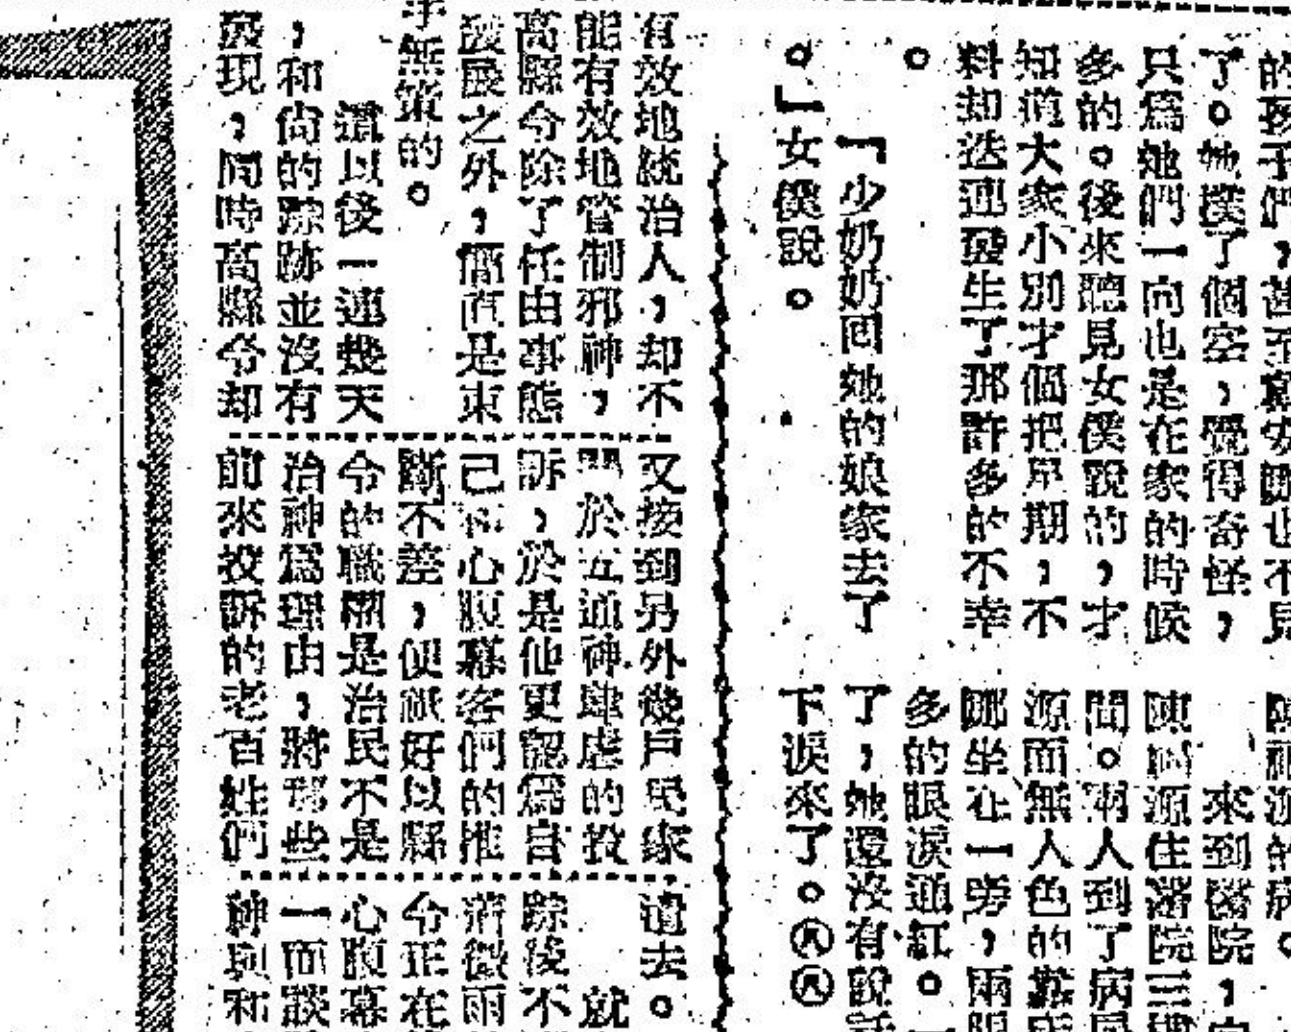 的孩子們，甚至
也不見
了。她撲了個空，覺得奇怪，
只爲她們一向也是在家的時候
多的。後來聽見女僕說的，才
知道大家小別才個把星期，不
料却迭連發生了那許多的不幸
。
「少奶奶回她的娘家去了
。」女僕說。
來到醫院，
陳
源住潘院三
間。兩人到了病房
源面無人色的
娜坐在一旁，兩眼
多的眼淚通紅。
了，她還沒有說話
下淚來了。
有效地統治人，却不
能有效地管制邪神，
高縣令除了任由事態
發展之外，簡直是束
手無策的。
這以後一連幾天
，和尙的踪跡並沒有
發現，同時高縣令却
又接到另外幾戶民家
關於五通神肆虐的投
訴，於是他更認爲自
己和心腹幕客們的推
斷不差，便祇好以縣
令的職權是治民不是
治神爲理由，將那些
前來投訴的老百姓們
遣去。
就
踪後不
令正在
心腹幕
一面談
神與和